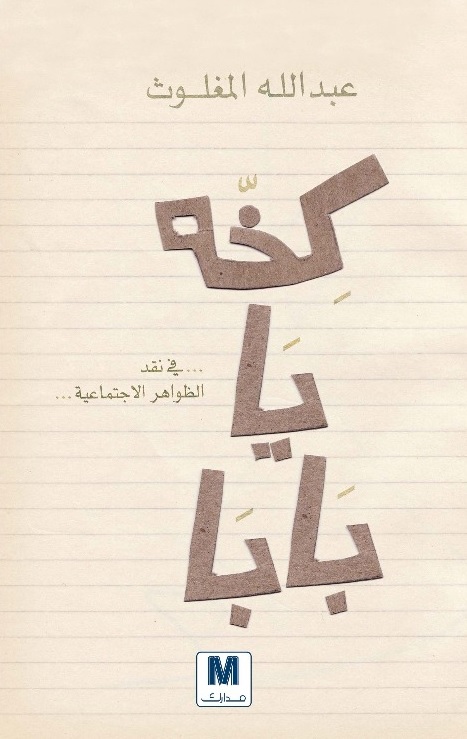 عبدالله المغلوث
كِخّه
يَا
بَابَا
...في نقد
الظواهر الاجتماعية...
M
مدارك